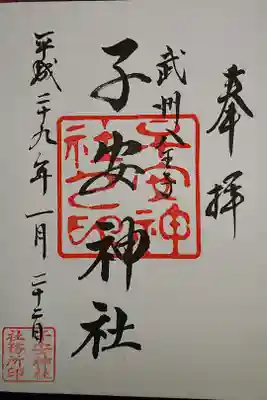 奉拝
武州八王子
子安神社
平成二十九年一月二十二日
子安神社之印
子安神社
社務所印